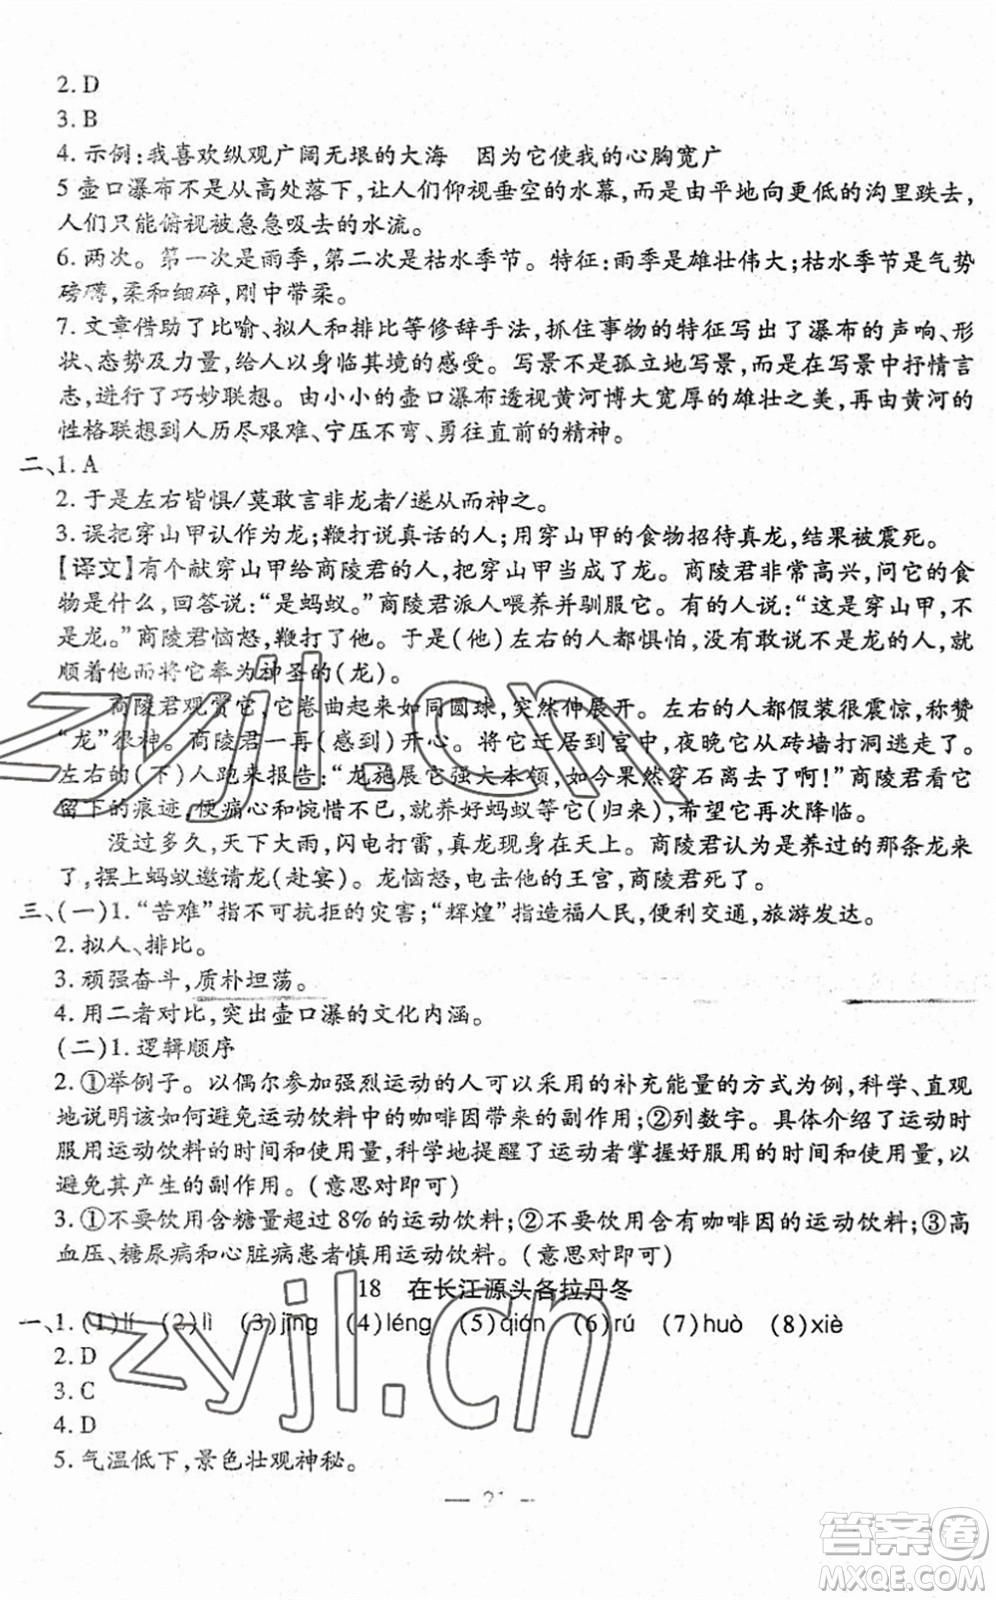 2. D
3. B
4. 示例:我喜欢纵观广阔无垠的大海　因为它使我的心胸宽广
5 壶口瀑布不是从高处落下,让人们仰视垂空的水幕,而是由平地向更低的沟里跌去,
人们只能俯视被急急吸去的水流。
6. 两次。第一次是雨季,第二次是枯水季节。特征:雨季是雄壮伟大;枯水季节是气势
磅礴,柔和细碎,刚中带柔。
7. 文章借助了比喻、拟人和排比等修辞手法,抓住事物的特征写出了瀑布的声响、形
状、态势及力量,给人以身临其境的感受。写景不是孤立地写景,而是在写景中抒情言
志,进行了巧妙联想。由小小的壶口瀑布透视黄河博大宽厚的雄壮之美,再由黄河的
性格联想到人历尽艰难、宁压不弯、勇往直前的精神。
二、1. A
2. 于是左右皆惧/莫敢言非龙者/遂从而神之。
3. 误把穿山甲认作为龙;鞭打说真话的人;用穿山甲的食物招待真龙,结果被震死。
【译文】有个献穿山甲给商陵君的人,把穿山甲当成了龙。商陵君非常高兴,问它的食
物是什么,回答说:“是蚂蚁。”商陵君派人喂养并驯服它。有的人说:“这是穿山甲,不
是龙。”商陵君恼怒,鞭打了他。于是(他)左右的人都惧怕,没有敢说不是龙的人,就
顺着他而将它奉为神圣的(龙)。
商陵君观赏它,它卷曲起来如同圆球,突然伸展开。左右的人都假装很震惊,称赞
“龙”很神。商陵君一再(感到)开心。将它迁居到宫中,夜晚它从砖墙打洞逃走了。
左右的(下)人跑来报告:“龙施展它强大本领,如今果然穿石离去了啊!”商陵君看它
留下的痕迹,便痛心和惋惜不已,就养好蚂蚁等它(归来),希望它再次降临。
没过多久,天下大雨,闪电打雷,真龙现身在天上。商陵君认为是养过的那条龙来
了,摆上蚂蚁邀请龙(赴宴)。龙恼怒,电击他的王宫,商陵君死了。
三、(一)1. “苦难”指不可抗拒的灾害;“辉煌”指造福人民,便利交通,旅游发达。
2. 拟人、排比。
3. 顽强奋斗,质朴坦荡。
4. 用二者对比,突出壶口瀑的文化内涵。
(二)1. 逻辑顺序
2. ①举例子。以偶尔参加强烈运动的人可以采用的补充能量的方式为例,科学、直观
地说明该如何避免运动饮料中的咖啡因带来的副作用;②列数字。具体介绍了运动时
服用运动饮料的时间和使用量,科学地提醒了运动者掌握好服用的时间和使用量,以
避免其产生的副作用。(意思对即可)
3. ①不要饮用含糖量超过8%的运动饮料;②不要饮用含有咖啡因的运动饮料;③高
血压、糖尿病和心脏病患者慎用运动饮料。(意思对即可)
18　在长江源头各拉丹冬
一、1. (1)lí　(2)lì　(3)jīng　(4)léng　(5)qián　(6)rú　(7)huò　(8)xiè
2. D
3. C
4. D
5. 气温低下,景色壮观神秘。
— 21 —
zyjl.cn
zyjl.cn
答案圈
MXQE.COM